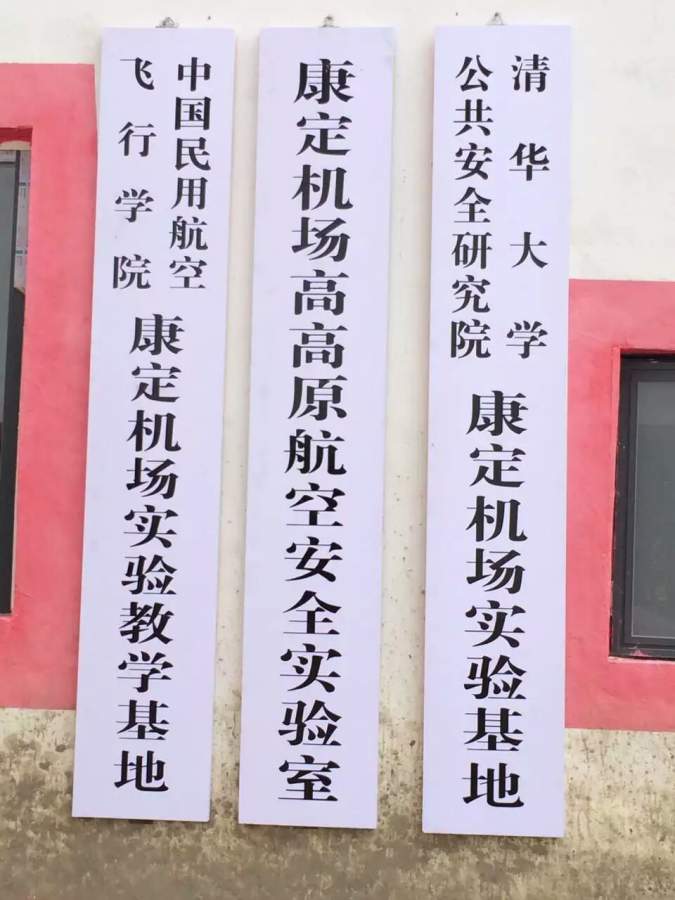 清华大学
公共安全研究院
康定机场实验基地
康定机场高高原航空安全实验室
中国民用航空
飞行学院
康定机场实验教学基地